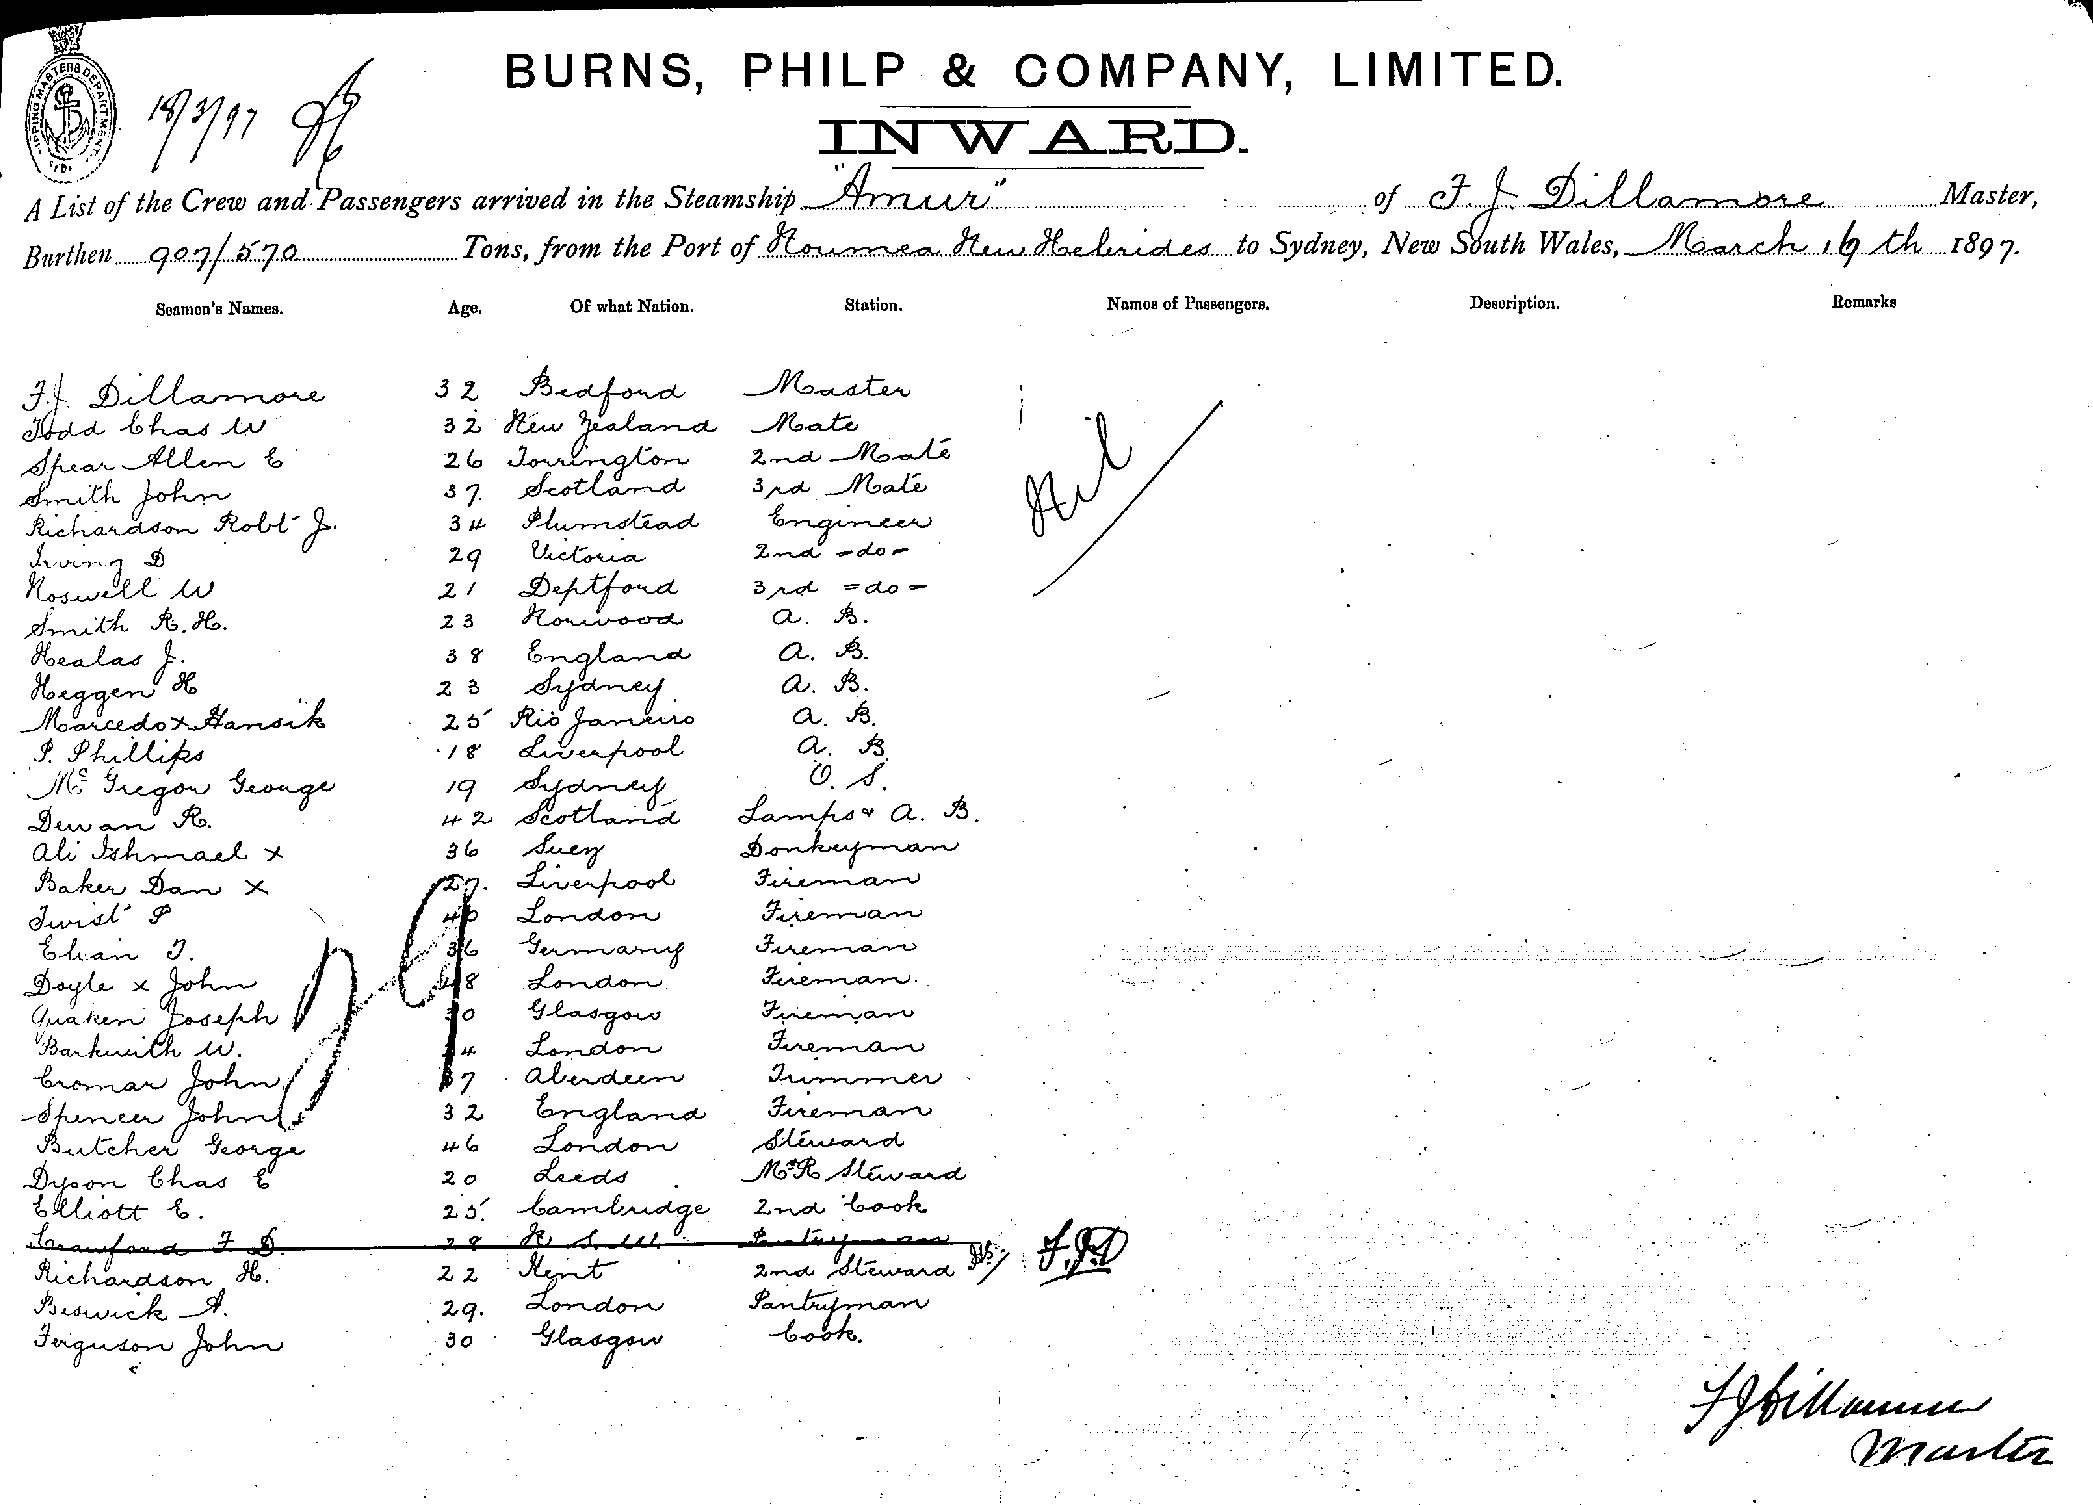 SHIPPING MASTERS DEPARTMENT
18/3/97
BURNS, PHILP & COMPANY, LIMITED.
INWARD.
A List of the Crew and Passengers arrived in the Steamship "Amur" of F. J. Dillamore Master,
Burthen 907/570 Tons, from the Port of Noumea New Hebrides to Sydney, New South Wales, March 19th 1897.
Seamen's Names. Age. Of what Nation. Station. Names of Passengers. Description. Remarks
F.J. Dillamore 32 Bedford Master
Todd Chas W 32 New Zealand Mate
Spear Allen E 26 Torrington 2nd Mate
Smith John 37. Scotland 3rd Mate
Nil
Richardson Robt J. 34 Plumstead Engineer
Irving D 29 Victoria 2nd =do=
Roswell W 21 Deptford 3rd =do=
Smith R. H. 23 Norwood A. B.
Healas J. 38 England A. B.
Heggen H 23 Sydney A. B.
Marcedo x Hansik 25 Rio Janeiro A. B.
P. Phillips 18 Liverpool A. B.
Mc Gregor George 19 Sydney O. S.
Dewan R. 42 Scotland Lamps & A. B.
Ali Ishmael x 36 Suez Donkeyman
Baker Dan x 27. Liverpool Fireman
Twist P 40 London Fireman
29
Elian T. 36 Germany Fireman
Doyle x John 48 London Fireman.
Quaken Joseph 30 Glasgow Fireman
Barkwith W. 4 London Fireman
Cromar John 37 Aberdeen Trimmer
Spencer John 32 England Fireman
Butcher George 46 London Steward
Dyson Chas E 20 Leeds M.R Steward
Elliott E. 25. Cambridge 2nd Cook
Crawford F D. 28 N. S. W. Pantryman F.J.D
Richardson H. 22 Kent 2nd Steward
Beswick A. 29. London Pantryman
Ferguson John 30 Glasgow Cook.
F J Dillamore
Master